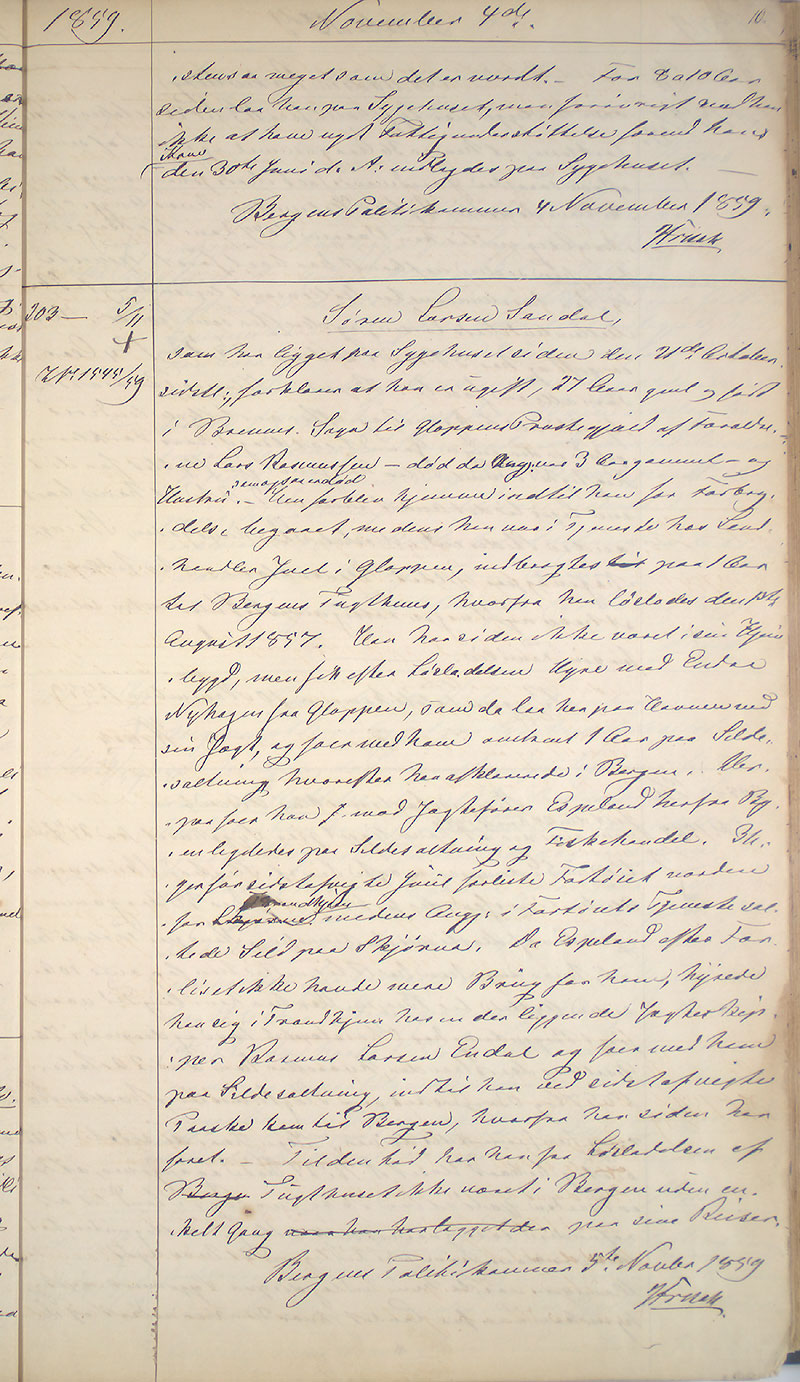 1859. November 4de. 10.
stens saa meget som det er værdt. – For 8 a 10 Aar
siden laa han paa Sygehuset, men forøvrigt ved han
ikke at have nydt Fattigunderstøttelse førend hans
Kone
den 30te Juni d. A. indlagdes paa Sygehuset. –
Bergens Politikammer 4 November 1859.
203 – 5/11
Søren Larsen Sandal,
1545/59
som har ligget paa Sygehuset siden den 21de October
sidstl:, forklarer at han er ugift, 27 Aar gml og født
i Bremnes Sogn til Gloppens Præstegjeld af Forældre-
ne Lars Rasmussen – død da Ang. var 3 Aar gammel – og
Hustru – Han forblev hjemme indtil han for Forbry-
delse, begaaet, medens han var i Tjeneste hos Land-
handler Juel i Gloppen, indbragtes paa 1 Aar
til Bergens Tugthuus, hvorfra han løslodes den
August 1857. Han har siden ikke været i sin Hjem
bygd, men fik efter Løsladelsen Hyre med Endre
Nyhagen fra Gloppen, som da laa her paa Havnen med
sin Jagt, og foer med ham omtrent 1 Aar paa Silde-
saltning hvorefter han afklarerede i Bergen. Der-
paa foer han med Jagtefører Espeland herfra By-
en ligeledes paa Sildesaltning og Fiskehandel. Ih-
gen før sidstafvigte Juul forliste Fartøiet norden
for Trondhjem medens Ang: i Fartøiets Tjeneste sal-
tede Sild paa Skjørna. Da Espeland efter For-
liset ikke havde mere Brug for ham, hyrede
han sig i Trondhjem hos en der liggende Jagteskip-
per Rasmus Larsen Endal og foer med ham
paa Sildesaltning, indtil han ved sidstafvigte
Paaske kom til Bergen, hvorfra han siden har
faret. – Til den Tid har han fra Løsladelsen af
Tugthuset ikke været i Bergen uden en-
kelt Gang paa sine Reiser.
Bergens Politikammer 5te Novbr 1859